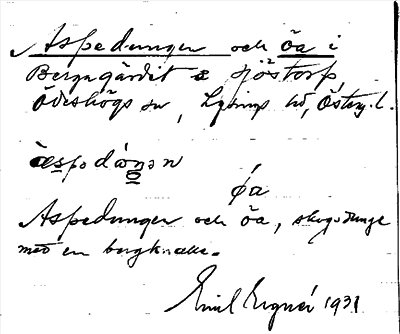 Aspedungen och öa i
Bergagärdet s Sjöstorp,
Ödeshögs sn, Lysings hd, Österg.l.
öa
Aspedungen och öa, skogsdunge
med en bergknalle.
Emil Ergner 1931